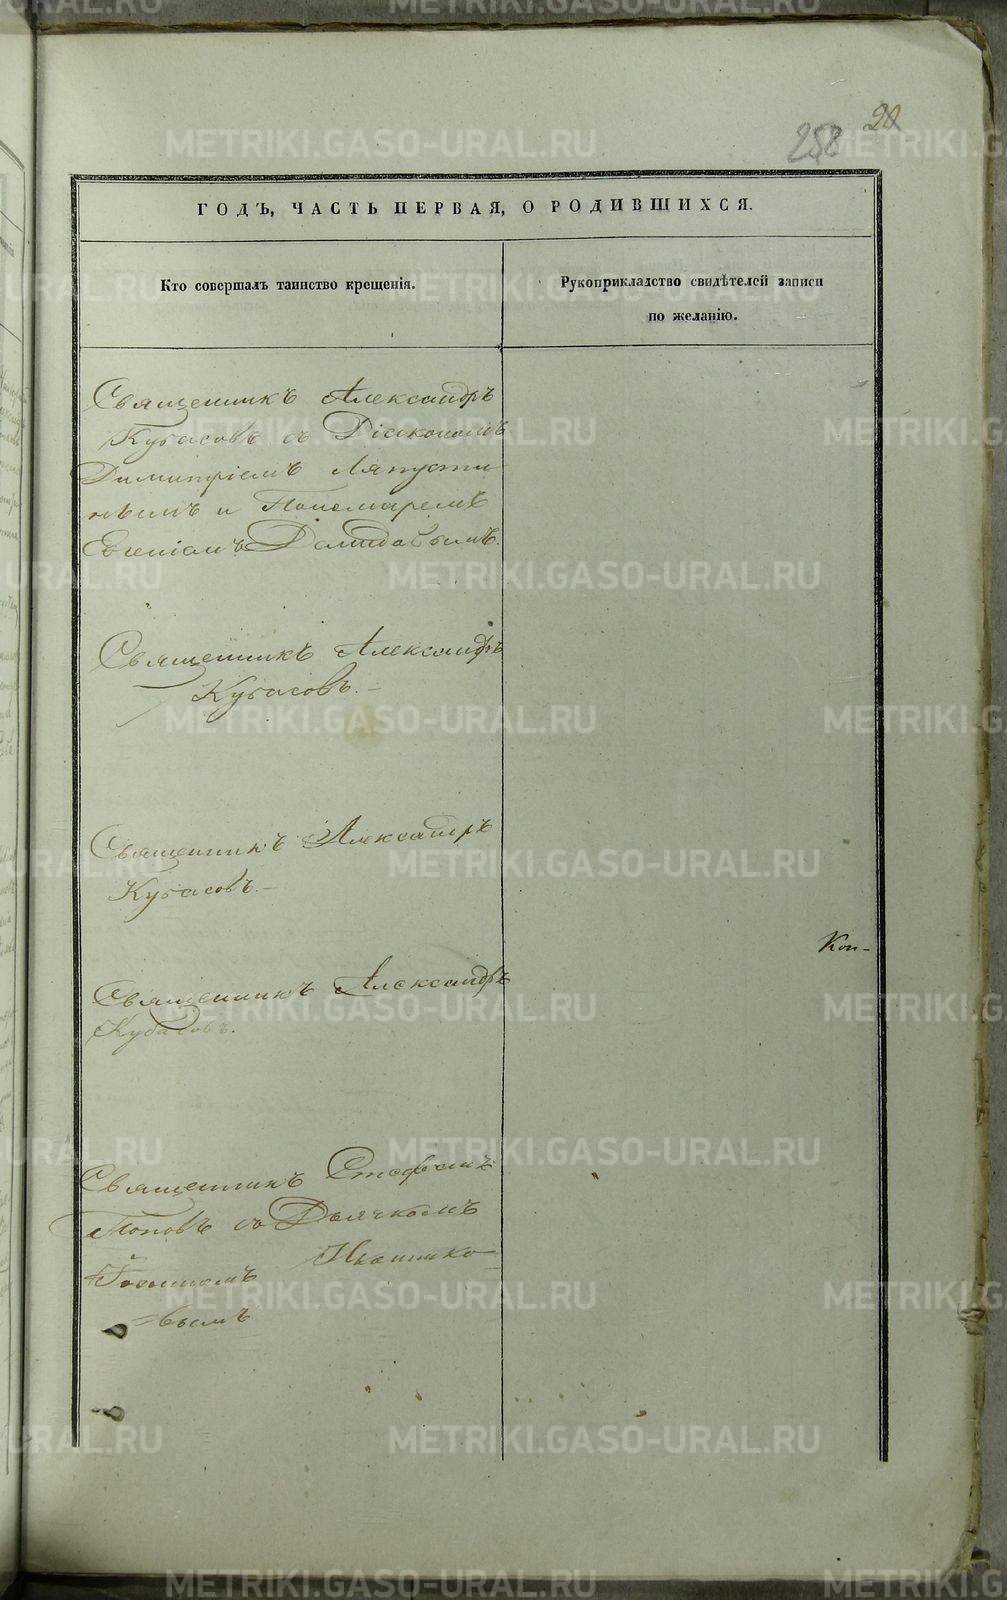 20
258
ГОДЪ, ЧАСТЬ ПЕРВАЯ, О РОДИВШИХСЯ.
Кто совершалъ таинство крещенія.
Рукоприкладство свидѣтелей записи
по желанію.
Священникъ Александръ
Кубасовъ съ Діакономъ
Димитріемъ Ляпусти
нымъ и Пономаремъ
Евгеніемъ
Священникъ Александръ
Кубасовъ.
Священникъ Александръ
Кубасовъ.
Коп-
Священникъ Александръ
Кубасовъ.
Священникъ Стефанъ
Поповъ съ Дьячкомъ
Іоанномъ Иконнико
вымъ
METRIKI.GASO-URAL.RU